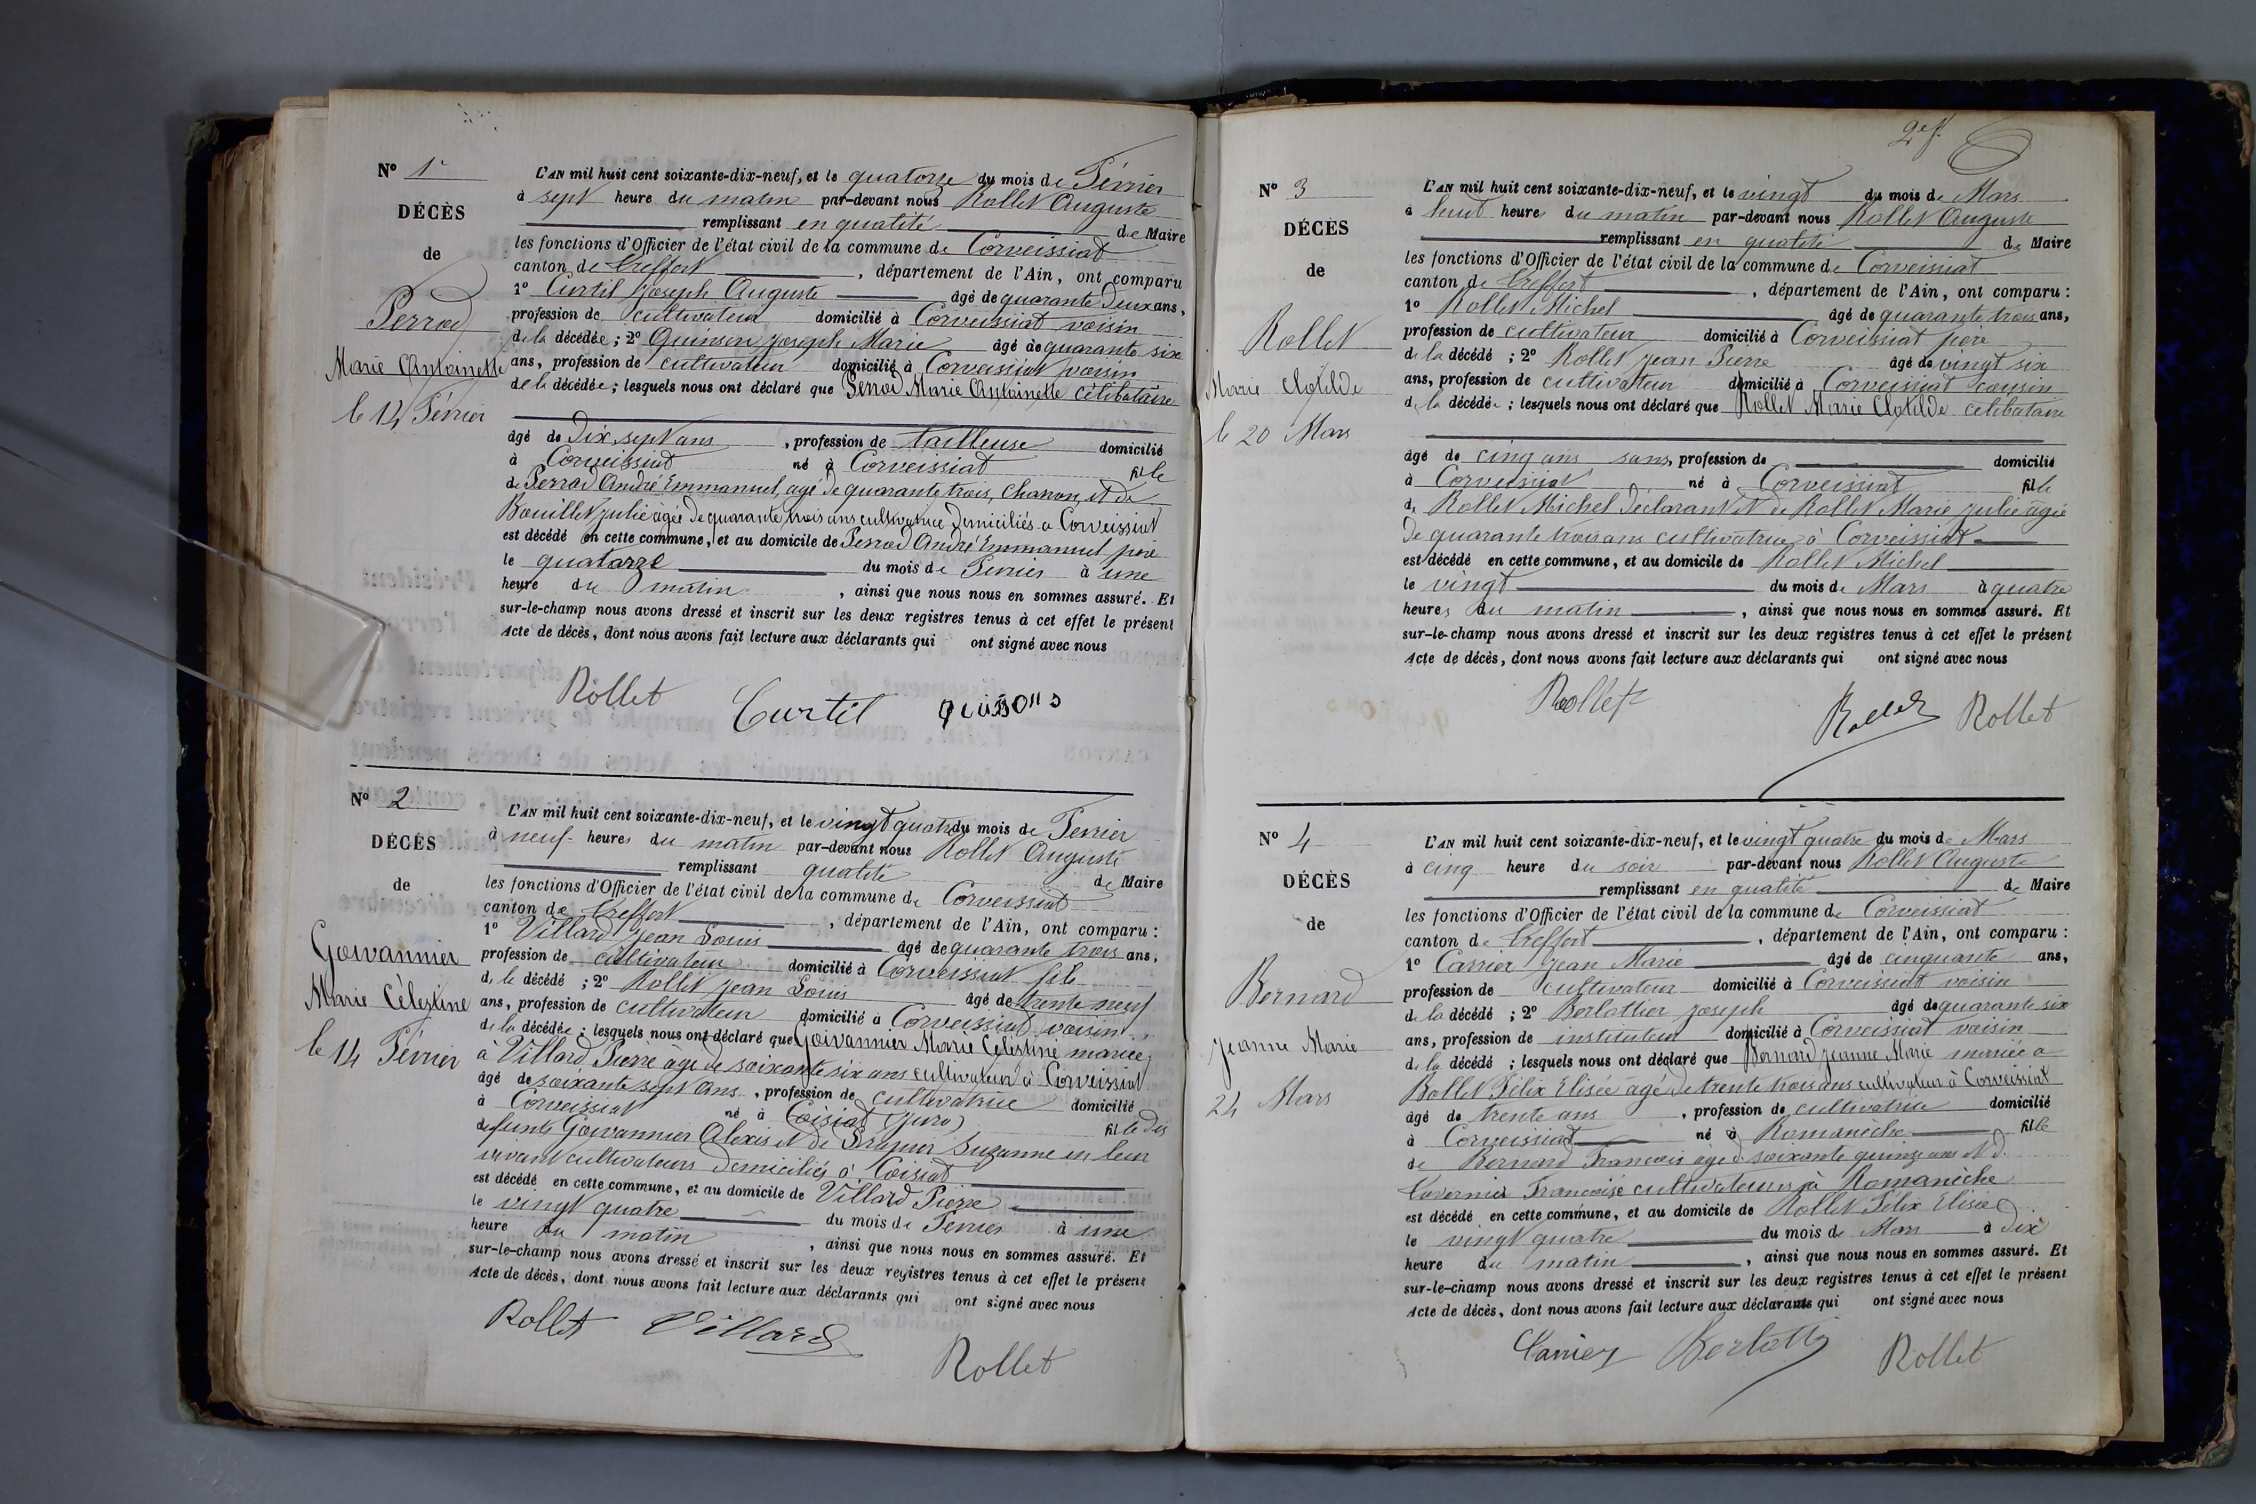 N° 1er
DÉCÈS
de
Perrod
Marie Antoinette
le 14 Février
L'AN mil huit cent soixante-dix-neuf, et le quatorze du mois de Février
à sept heure du matin par-devant nous Rollet Auguste
remplissant en qualité de Maire
les fonctions d'Officier de l'état civil de la commune de Corveissiat
canton de Treffort, département de l'Ain, ont comparu
1° Curtil Joseph Auguste âgé de quarante deux ans,
profession de cultivateur domicilié à Corveissiat voisin
de la décédée ; 2° Quinson Joseph Marie âgé de quarante six
ans, profession de cultivateur domicilié à Corveissiat voisin
de la décédée ; lesquels nous ont déclaré que Perrod Marie Antoinette célibataire
âgé de Dix sept ans, profession de tailleuse domicilié
à Corveissiat né à Corveissiat fille
de Perrod André Emmanuel, agé de quarante trois, charron, et de
Bouillet Julie agée de quarante trois ans cultivatrice domiciliés a Corveissiat
est décédé en cette commune, et au domicile de Perrod André Emmanuel père
le quatorze du mois de Février à une
heure du matin, ainsi que nous nous en sommes assuré. Et
sur-le-champ nous avons dressé et inscrit sur les deux registres tenus à cet effet le présent
Acte de décès, dont nous avons fait lecture aux déclarants qui ont signé avec nous
Rollet Curtil quinson
N° 2
DÉCÈS
de
Goivannier
Marie Célestine
le 14 Février
L'AN mil huit cent soixante-dix-neuf, et le vingt quatre du mois de Fevrier
à neuf heures du matin par-devant nous Rollet Auguste
remplissant qualité de Maire
les fonctions d'Officier de l'état civil de la commune de Corveissiat
canton de Treffort, département de l'Ain, ont comparu :
1° Villard Jean Louis âgé de quarante trois ans,
profession de cultivateur domicilié à Corveissiat fils
de la décédé ; 2° Rollet Jean Louis âgé de trente neuf
ans, profession de cultivateur domicilié à Corveissiat voisin
de la décédée ; lesquels nous ont déclaré que Goivannier Marie Célestine mariée
à Villard Pierre âgé de soixante six ans cultivateur à Corveissiat
âgé de soixante sept ans, profession de cultivatrice domicilié
à Corveissiat né à Coisiat (Jura) fille des
defunts Goivannier Alexis et de Suzanne en leur
vivant cultivateurs domiciliés à Coisiat
est décédé en cette commune, et au domicile de Villard Pierre
le vingt quatre du mois de Fevrier à une
heure du matin, ainsi que nous nous en sommes assuré. Et
sur-le-champ nous avons dressé et inscrit sur les deux registres tenus à cet effet le présent
Acte de décès, dont nous avons fait lecture aux déclarants qui ont signé avec nous
Rollet Villard
Rollet
2e f.
N° 3
DÉCÈS
de
Rollet
Marie Clotilde
le 20 Mars
L'AN mil huit cent soixante-dix-neuf, et le vingt du mois de Mars
à huit heures du matin par-devant nous Rollet Auguste
remplissant en qualité de Maire
les fonctions d'Officier de l'état civil de la commune de Corveissiat
canton de Treffort, département de l'Ain, ont comparu :
1° Rollet Michel âgé de quarante trois ans,
profession de cultivateur domicilié à Corveissiat père
de la décédé ; 2° Rollet Jean Pierre âgé de vingt six
ans, profession de cultivateur domicilié à Corveissiat cousin
de la décédée ; lesquels nous ont déclaré que Rollet Marie Clotilde célibataire
âgé de cinq ans sans, profession de domicilié
à Corveissiat né à Corveissiat fille
de Rollet Michel déclarant et de Rollet Marie Julie agée
de quarante trois ans cultivatrice à Corveissiat
est décédé en cette commune, et au domicile de Rollet Michel
le vingt du mois de Mars à quatre
heures du matin, ainsi que nous nous en sommes assuré. Et
sur-le-champ nous avons dressé et inscrit sur les deux registres tenus à cet effet le présent
Acte de décès, dont nous avons fait lecture aux déclarants qui ont signé avec nous
Rollet Rollet Rollet
N° 4
DÉCÈS
de
Bernard
Jeanne Marie
24 Mars
L'AN mil huit cent soixante-dix-neuf, et le vingt quatre du mois de Mars
à cinq heure du soir par-devant nous Rollet Auguste
remplissant en qualité de Maire
les fonctions d'Officier de l'état civil de la commune de Corveissiat
canton de Treffort, département de l'Ain, ont comparu :
1° Carrier Jean Marie âgé de cinquante ans,
profession de cultivateur domicilié à Corveissiat voisin
de la décédé ; 2° Berlottier Joseph âgé de quarante six
ans, profession de instituteur domicilié à Corveissiat voisin
de la décédé ; lesquels nous ont déclaré que Bernard Jeanne Marie mariée a
Rollet Félix Elisée agé de trente trois ans cultivateur à Corveissiat
âgé de trente ans, profession de cultivatrice domicilié
à Corveissiat né à Romanèche fille
de Bernard François agé d. soixante quinze ans et d.
Tavernier Françoise cultivateurs à Romanèche
est décédé en cette commune, et au domicile de Rollet Félix Elisée
le vingt quatre du mois de Mars à dix
heure du matin, ainsi que nous nous en sommes assuré. Et
sur-le-champ nous avons dressé et inscrit sur les deux registres tenus à cet effet le présent
Acte de décès, dont nous avons fait lecture aux déclarants qui ont signé avec nous
Carrier Rollet